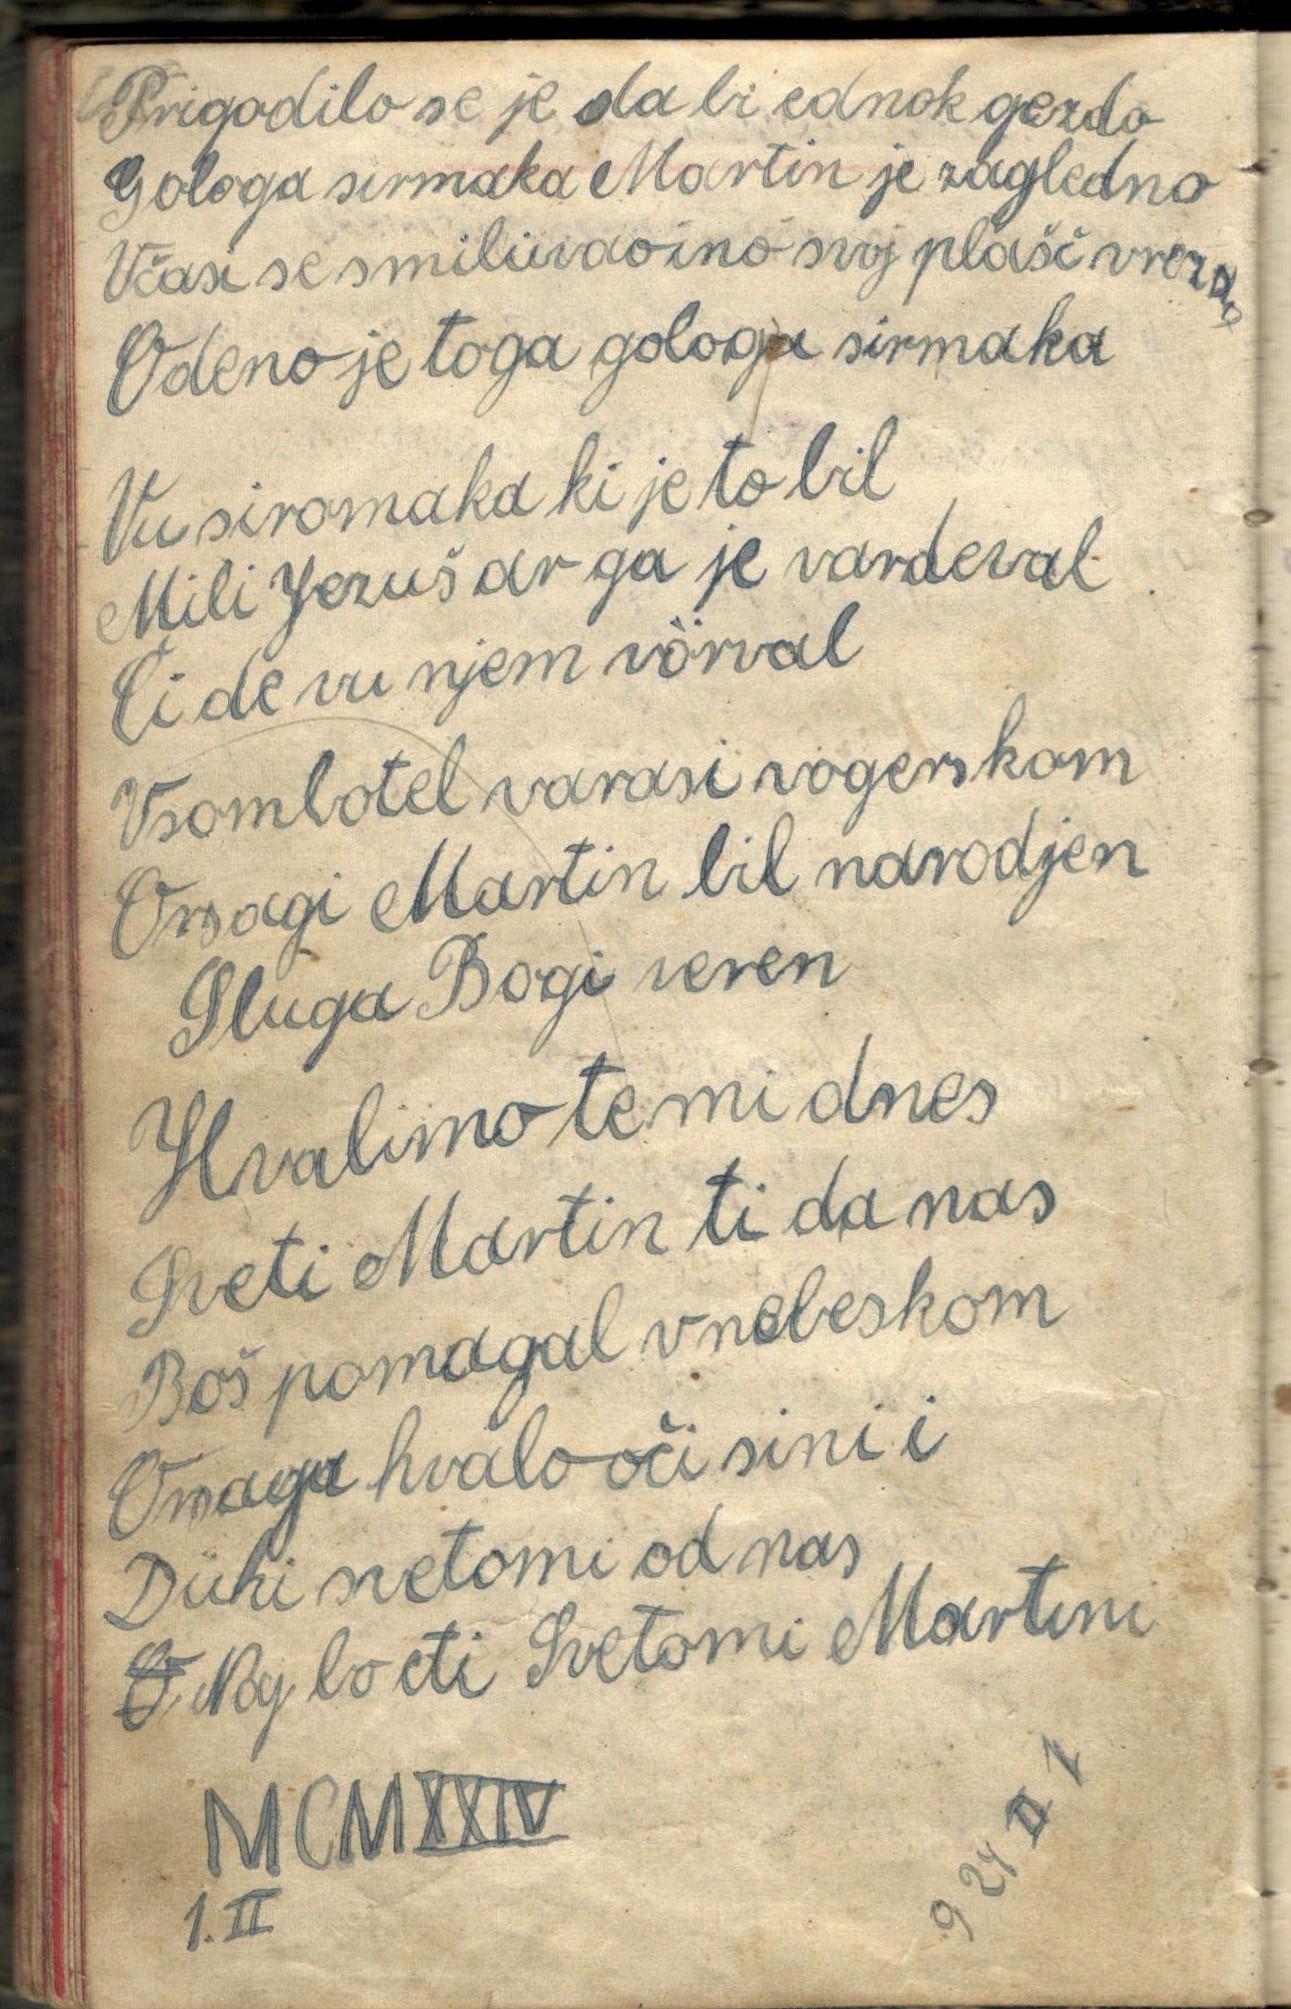 Prigodilo se je da bi ednok gezdo
Gologa sirmaka Martin je zagledno
Včasi se smilüvao ino svoj plašč vrezao
Odeno je toga gologa sirmaka
Vu siromaka ki je to bil
Mili Jezuš ar ga je vardeval
Či de vu njem vörval
Vsombotel varasi vogerskom
Orsagi Martin bil narodjen
Sluga Bogi veren
Hvalimo te mi dnes
Sveti Martin ti da nas
Boš pomagal v nebeskom
Orsaga hvalo oči sini i
Dühi svetomi od nas
Noj bo eti Svetomi Martini
MCMXXIV
1. II
9 24 II 1